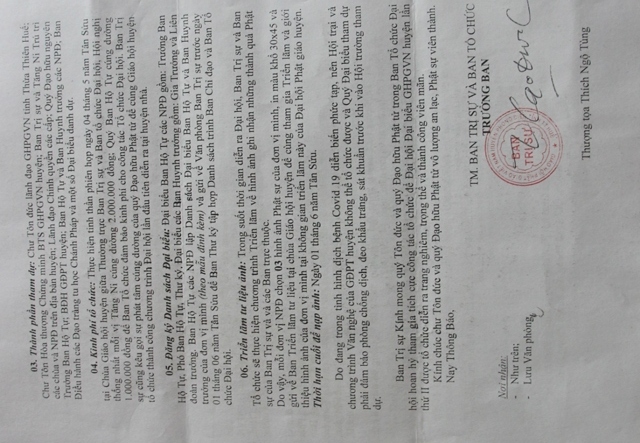 03. Thành phần tham dự: Chư Tôn đức lãnh đạo GHPGVN tỉnh Thừa Thiên Huế;
Chư Tôn Hòa thượng Chứng minh BTS GHPGVN huyện; Ban Trị sự và Tăng Ni Tọa trú
các chùa và NPĐ trên địa bàn huyện; Lãnh đạo Chính quyền các cấp; Quý Đạo hữu nguyên
Trưởng Ban Hộ Tự; BĐH GĐPT huyện; Ban Hộ Tự và Ban Huynh trưởng các NPĐ; Ban
Điều hành các Đạo tràng tu học Chánh Pháp và một số Đại biểu danh dự.
04. Kinh phí tổ chức: Thực hiện tinh thần phiên họp ngày 04 tháng 5 năm Tân Sửu
tại Chùa Giáo hội huyện giữa Thường trực Ban Trị sự và Ban tổ chức Đại hội, Hội nghị
thống nhất mỗi vị Tăng Ni cúng dường 2.000.000 đồng, Quý Ban Hộ Tự cúng dường
1.000.000 đồng để Ban Tổ chức đảm bảo kinh phí cho công tác Tổ chức Đại hội. Ban Trị
sự cũng kêu gọi sự phát tâm cúng dường của quý Đạo hữu Phật tử để cùng Giáo hội huyện
tổ chức thành công chương trình Đại hội lần đầu tiên diễn ra tại huyện nhà.
05. Đăng ký Danh sách Đại biểu: Đại biểu Ban Hộ Tự các NPĐ gồm: Trưởng Ban
Hộ Tự, Phó Ban Hộ Tự, Thư ký. Đại biểu các Ban Huynh trưởng gồm: Gia Trưởng và Liên
đoàn trưởng. Ban Hộ Tự các NPĐ lập Danh sách Đại biểu Ban Hộ Tự và Ban Huynh
trưởng của đơn vị mình (theo mẫu đính kèm) và gửi về Văn phòng Ban Trị sự trước ngày
01 tháng 06 năm Tân Sửu để Ban Thư ký tập hợp Danh sách trình Ban Chỉ đạo và Ban Tổ
chức Đại hội.
06. Triển lãm tư liệu tỉnh: Trong suốt thời gian diễn ra Đại hội, Ban Trị sự và Ban
Tổ chức sẽ thực hiện chương trình Triển lãm về hình ảnh ghi nhận những thành quả Phật
sự của Ban Trị sự và các Ban trực thuộc.
Do vậy, mỗi đơn vị NPĐ chọn 03 hình ảnh Phật sự của đơn vị mình, in màu khổ 30x45 và
gửi về Ban Triển lãm tư liệu tại chùa Giáo hội huyện để cùng tham gia Triển lãm và giới
thiệu hình ảnh của đơn vị mình tại không gian triển lãm này của Đại hội Phật giáo huyện.
Thời hạn cuối để nạp ảnh: Ngày 01 tháng 6 năm Tân Sửu.
Do đang trong tình hình dịch bệnh Covid 19 diễn biến phức tạp, nên Hội trại và
chương trình Văn nghệ của GĐPT huyện không thể tổ chức được và Quý Đại biểu tham dự
phải đảm bảo phòng chống dịch, đeo khẩu trang, sát khuẩn trước khi vào Hội trường tham
dự.
Ban Trị sự Kính mong quý Tôn đức và quý Đạo hữu Phật tử trong Ban Tổ chức Đại
hội hoan hỷ tham gia tích cực công tác tổ chức để Đại hội Đại biểu GHPGVN huyện lần
thứ II được tổ chức diễn ra trang nghiêm, trọng thể và thành công viên mãn.
Kính chúc chư Tôn đức và quý Đạo hữu Phật tử vô lượng an lạc, Phật sự viên thành.
Nay Thông Báo,
Nơi nhận:
- Như trên;
- Lưu Văn phòng.
TM. BAN TRỊ SỰ VÀ BAN TỔ CHỨC
TRƯỞNG BAN
BAN
TRỊ SỰ
Thượng tọa Thích Ngộ Tùng